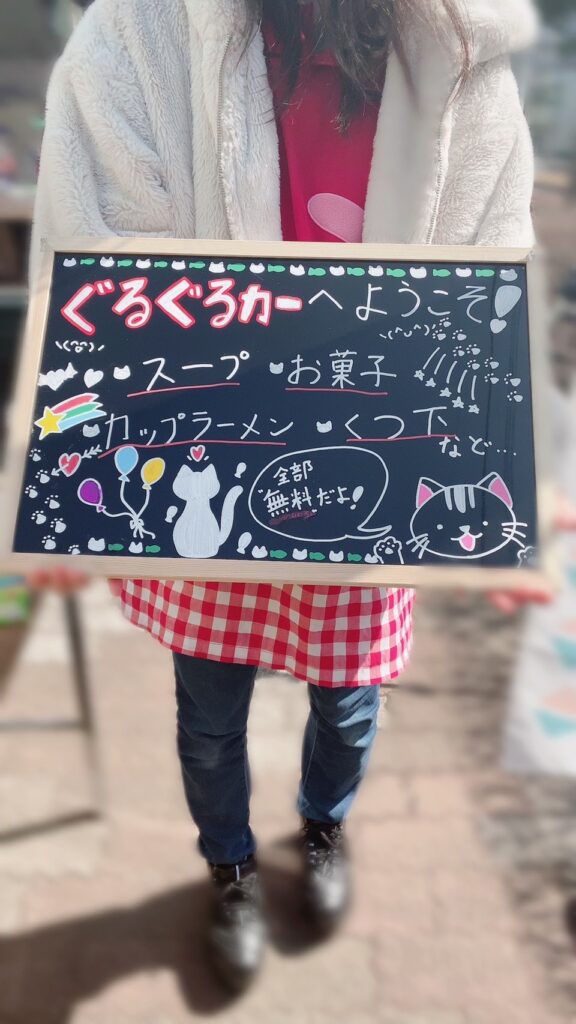 ぐるぐるカーへようこそ!
スープ お菓子
カップラーメン くつ下
など…
全部
"無料"だよ!